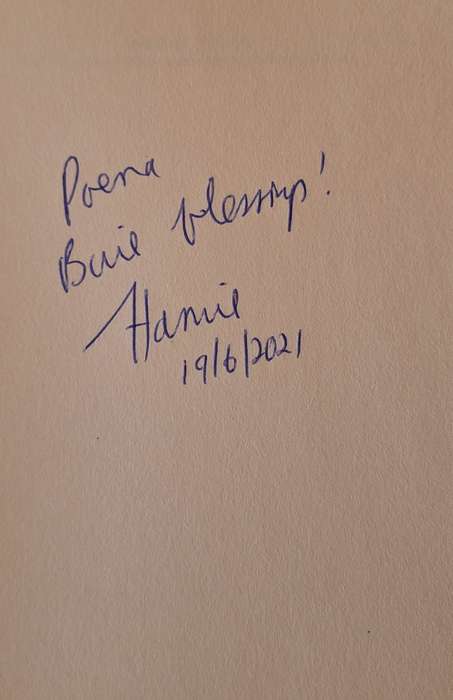 Poena
Baie blessings!
Hannie
19/6/2021